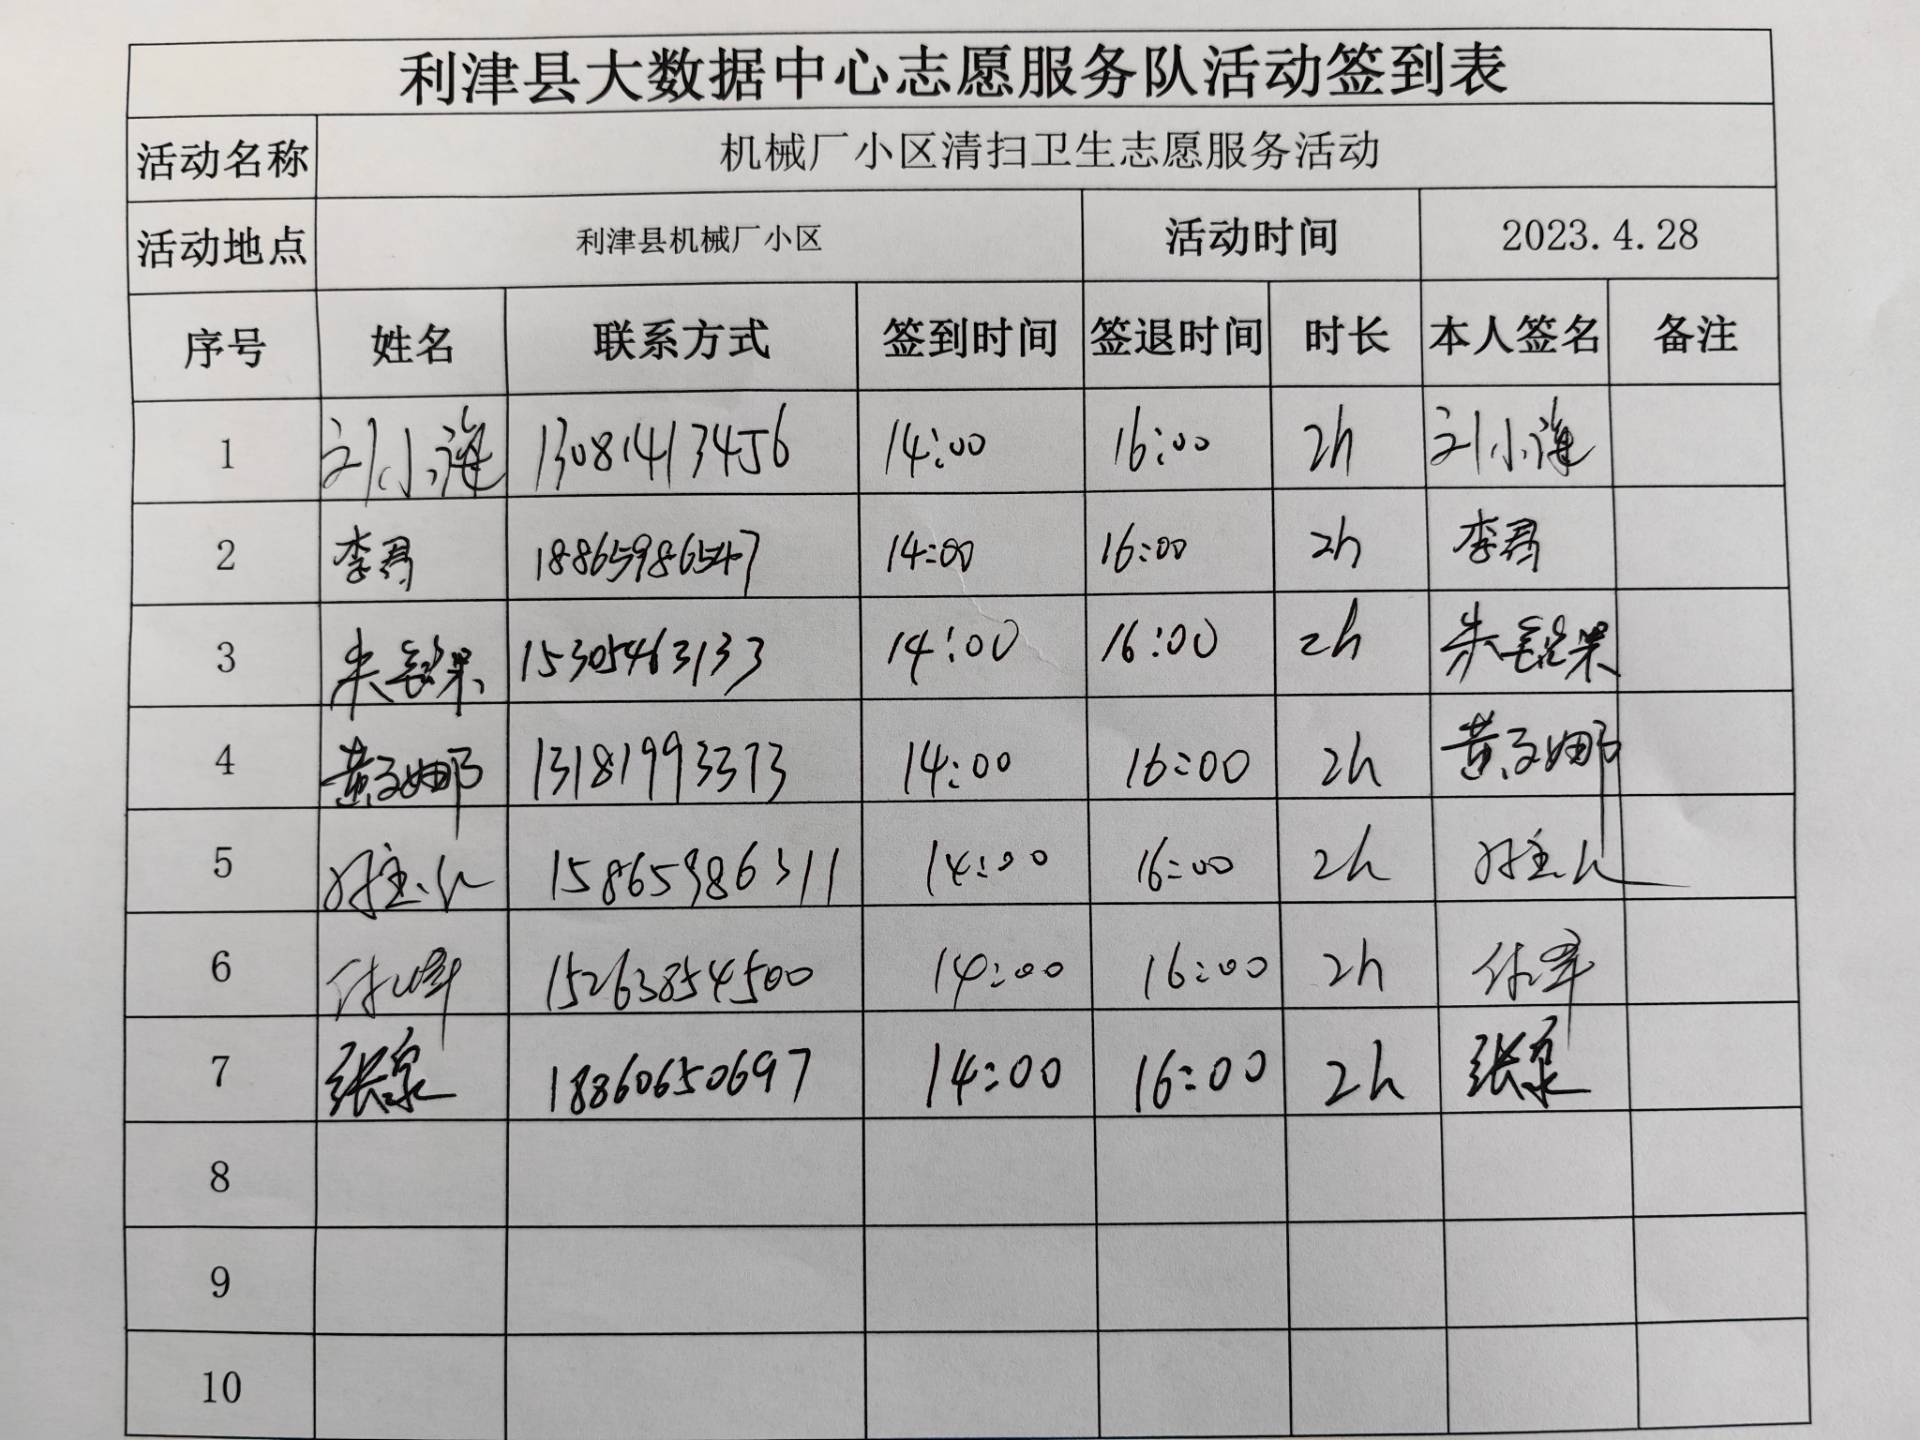 利津县大数据中心志愿服务队活动签到表
活动名称 机械厂小区清扫卫生志愿服务活动
活动地点 利津县机械厂小区 活动时间 2023.4.28
序号 姓名 联系方式 签到时间 签退时间 时长 本人签名 备注
1 刘小 13081413456 14:00 16:00 2h 刘小
2 李君 18865986547 14:00 16:00 2h 李君
3 朱铭杲 15305463133 14:00 16:00 2h 朱铭杲
4 黄子娜 13181993373 14:00 16:00 2h 黄子娜
5 15865986311 14:00 16:00 2h
6 付峰 15263854500 14:00 16:00 2h 付峰
7 张泉 18860650697 14:00 16:00 2h 张泉
8
9
10